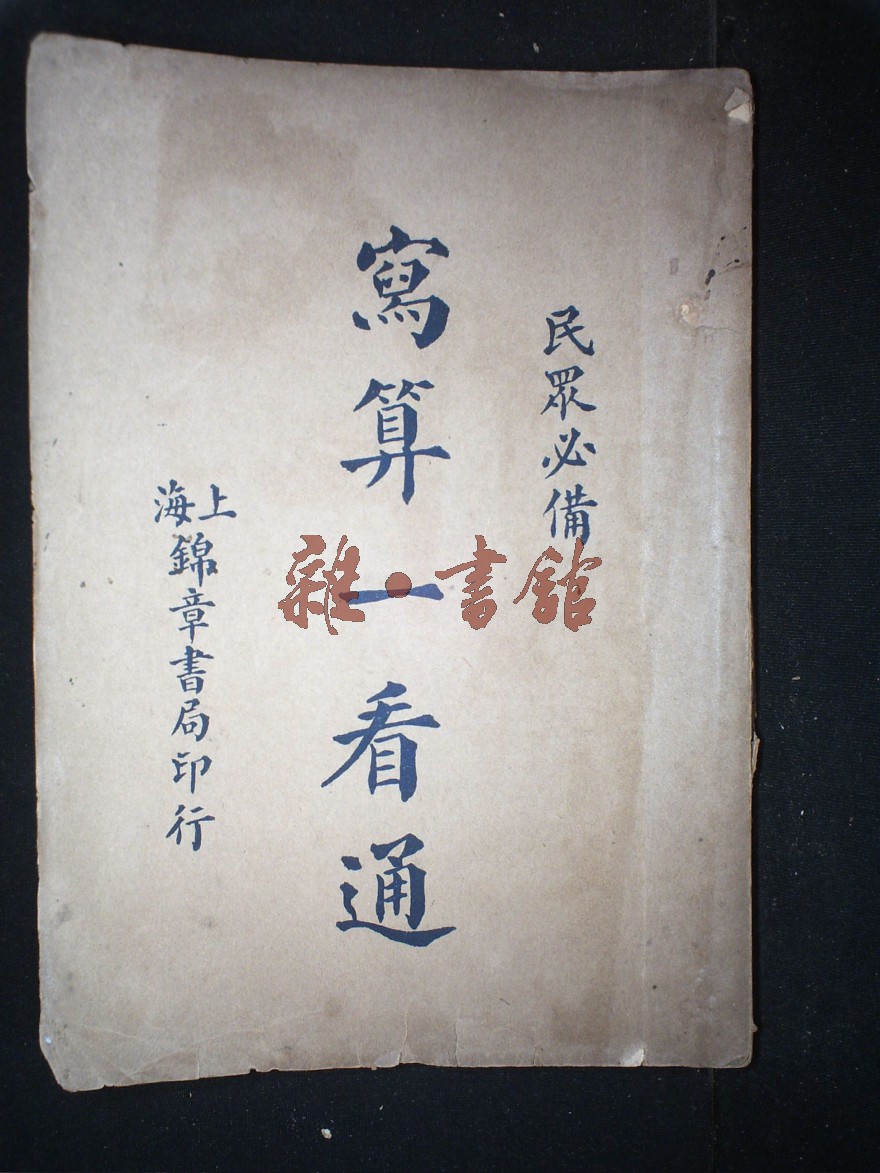 民眾必備
寫算一看通
上海
錦章書局印行
雜·書館